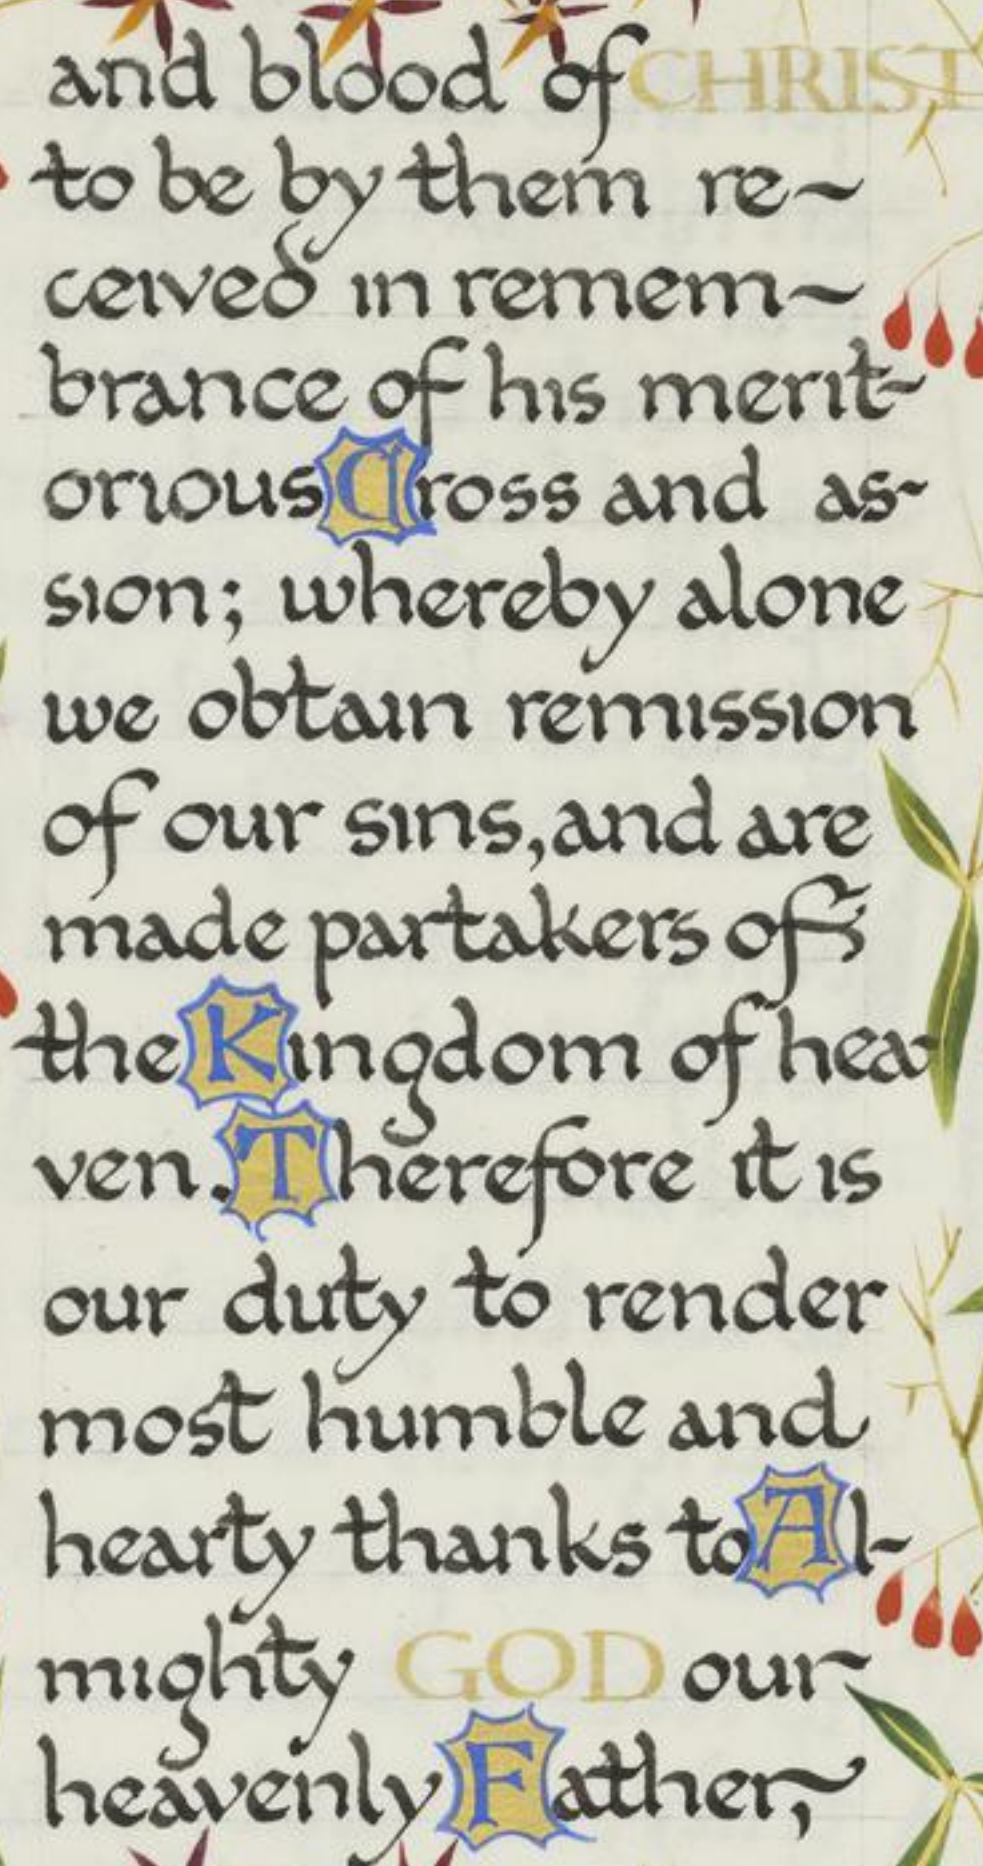 and blood of CHRIST
to be by them re~
ceived in remem~
brance of his merit-
orious Cross and as-
sion; whereby alone
we obtain remission
of our sins, and are
made partakers of
the Kingdom of hea
ven. Therefore it is
our duty to render
most humble and
hearty thanks to Al-
mighty GOD our
heavenly Father,